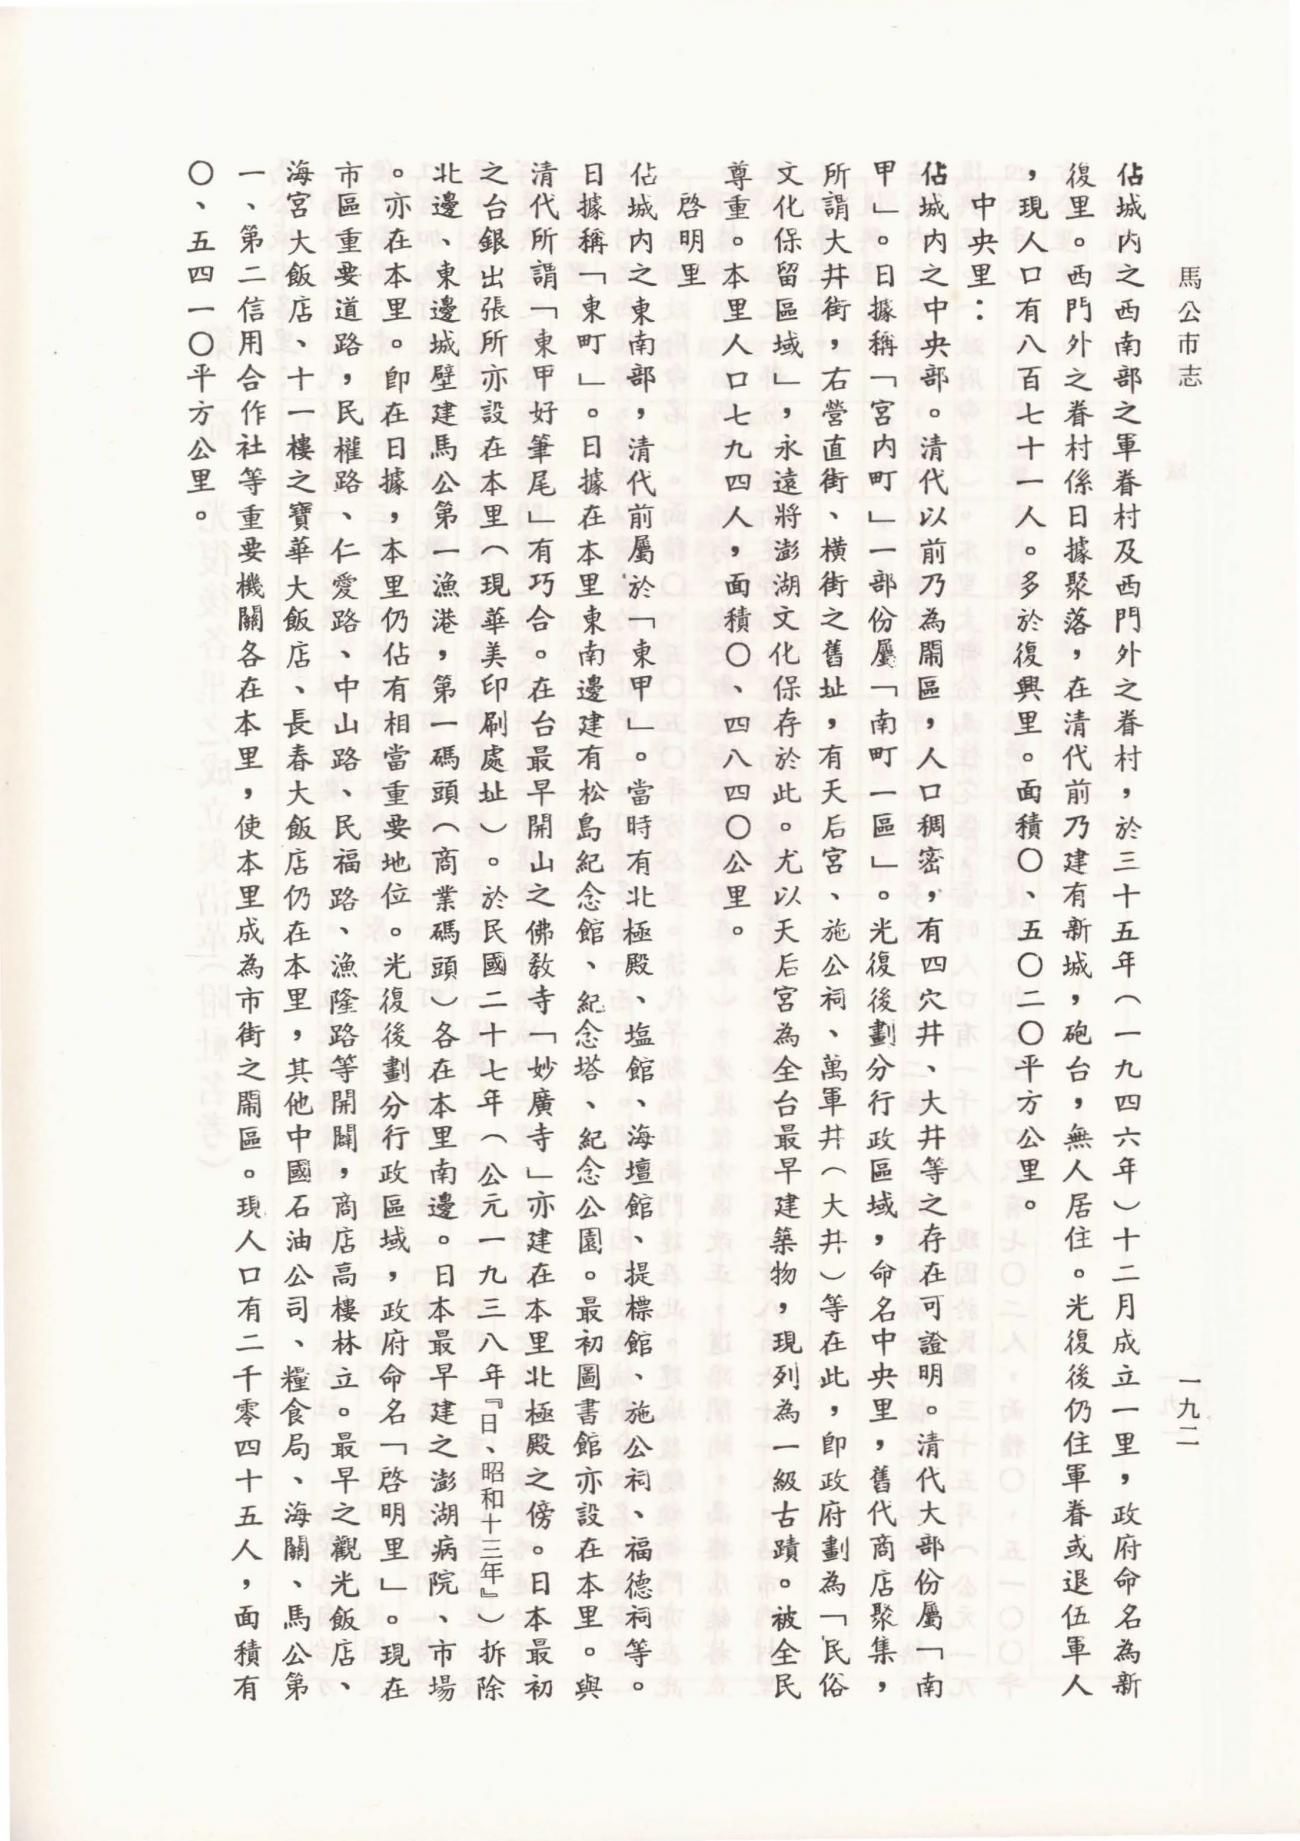 馬公市志
一九二
佔城內之西南部之軍眷村及西門外之眷村，於三十五年（一九四六年）十二月成立一里，政府命名為新
復里。西門外之眷村係日據聚落，在清代前乃建有新城，砲台，無人居住。光復後仍住軍眷或退伍軍人
，現人口有八百七十一人。多於復興里。面積〇、五〇二〇〇平方公里。
中央里：
佔城內之中央部。清代以前乃為鬧區，人口稠密，有四穴井、大井等之存在可證明。清代大部份屬「南
甲」。日據稱「宮內町」一部份屬「南町一區」。光復後劃分行政區域，命名中央里，舊代商店聚集，
所謂大井街，右營直街、橫街之舊址，有天后宮、施公祠、萬軍井（大井）等在此，即政府劃為「民俗
文化保留區域」，永遠將澎湖文化保存於此。尤以天后宮為全台最早建築物，現列為一級古蹟。被全民
尊重。本里人口七九四人，面積〇、四八四〇公里。
啓明里
佔城內之東南部，清代前屬於「東甲」。當時有北極殿、塩館、海壇館、提標館、施公祠、福德祠等。
日據稱「東町」。日據在本里東南邊建有松島紀念館、紀念塔、紀念公園。最初圖書館亦設在本里。與
清代所謂「東甲好筆尾」有巧合。在台最早開山之佛教寺「妙廣寺」亦建在本里北極殿之傍。日本最初
之台銀出張所亦設在本里（現華美印刷處址）。於民國二十七年（公元一九三八年『日、昭和十三年』）拆除
北邊、東邊城壁建馬公第一漁港，第一碼頭（商業碼頭）各在本里南邊。日本最早建之澎湖病院、市場
。亦在本里。即在日據，本里仍佔有相當重要地位。光復後劃分行政區域，政府命名「啓明里」。現在
市區重要道路，民權路、仁愛路、中山路、民福路、漁隆路等開闢，商店高樓林立。最早之觀光飯店、
海宮大飯店、十一樓之寶華大飯店、長春大飯店仍在本里，其他中國石油公司、糧食局、海關、馬公第
一、第二信用合作社等重要機關各在本里，使本里成為市街之鬧區。現人口有二千零四十五人，面積有
〇、五四一〇平方公里。